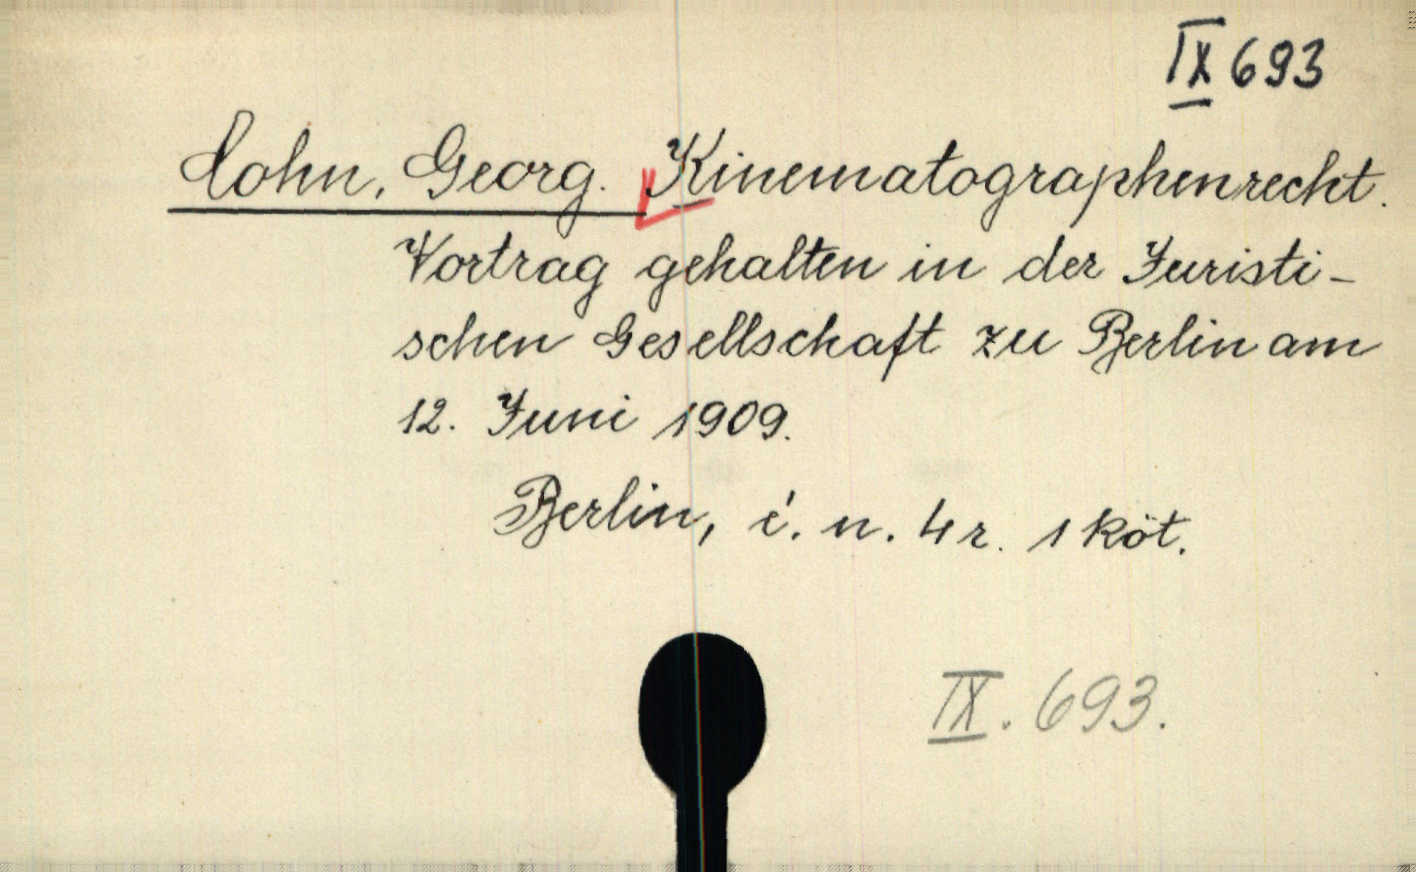 IX 693
Cohn, Georg. Kinematographenrecht.
Vortrag gehalten in der Juristi-
schen Gesellschaft zu Berlin am
12. Juni 1909.
Berlin, é. n. 4r. 1 köt.
IX. 693.